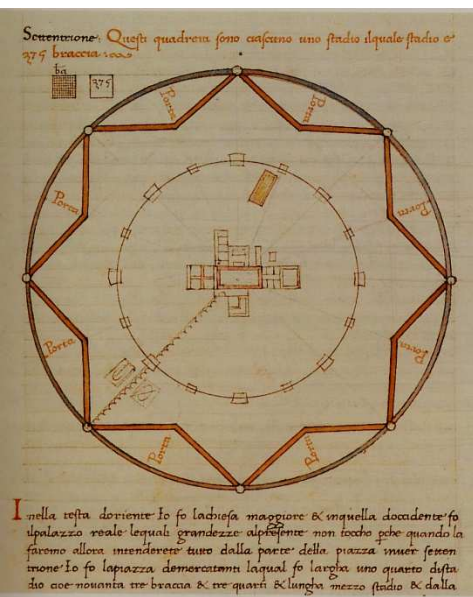 Settentrione: Questi quadretti sono ciascuno uno stadio ilquale stadio e
375 braccia
ba
375
Porta
Porta
Porta
Porta
Porta
Porta
Porta
Porta
Inella testa doriente Io fo lachiesa maggiore & inquella doccidente fo
ilpalazzo reale lequali grandezze alpresente non toccho pche quando la
faremo allora intenderete tuto dalla parte della piazza inver setten
trione Io fo lapiazza demercatanti laqual fo largha uno quarto dista
dio cioe novanta tre braccia & tre quarti & lungha mezzo stadio & dalla